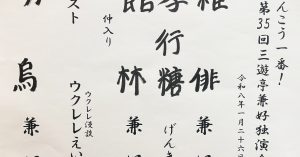 んこう一番！
第35回三遊亭兼好独演
令和八年一月二十六
俳 兼
行糖 げんき
林 兼
仲入り
スト ウクレレ漫談 ウクレレえい
烏 兼